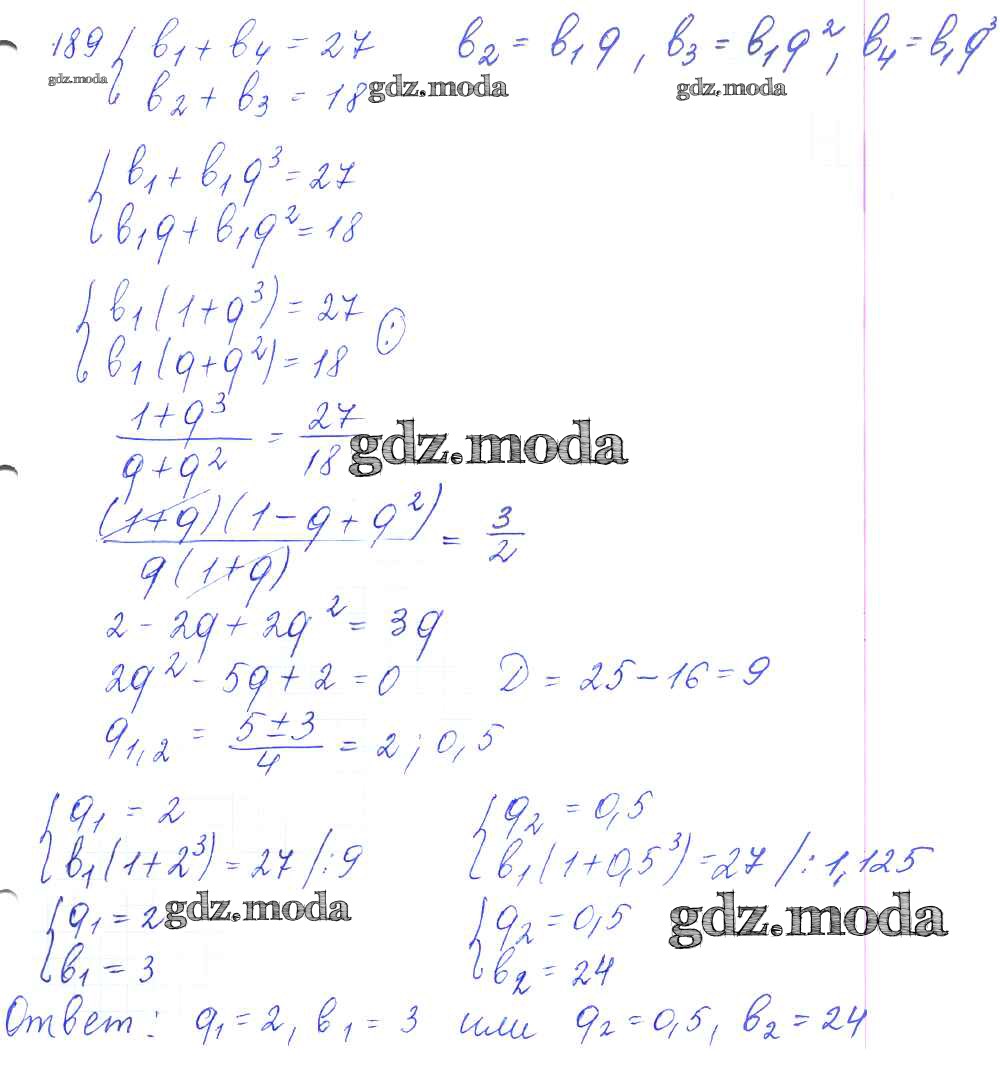 189 { b₁ + b₄ = 27 b₂ = b₁q, b₃ = b₁q², b₄ = b₁q³
gdz.moda
b₂ + b₃ = 18 gdz.moda gdz.moda
{ b₁ + b₁q³ = 27
b₁q + b₁q² = 18
{ b₁(1+q³) = 27
b₁(q+q²) = 18 :
(1+q³)/(q+q²) = 27/18 gdz.moda
((1+q)(1-q+q²))/(q(1+q)) = 3/2
2 - 2q + 2q² = 3q
2q² - 5q + 2 = 0 D = 25 - 16 = 9
q₁,₂ = (5±3)/4 = 2; 0,5
{ q₁ = 2 { q₂ = 0,5
b₁(1+2³) = 27 /:9 b₁(1+0,5³) = 27 /:1,125
{ q₁ = 2 gdz.moda { q₂ = 0,5 gdz.moda
b₁ = 3 b₂ = 24
Ответ: q₁ = 2, b₁ = 3 или q₂ = 0,5, b₂ = 24